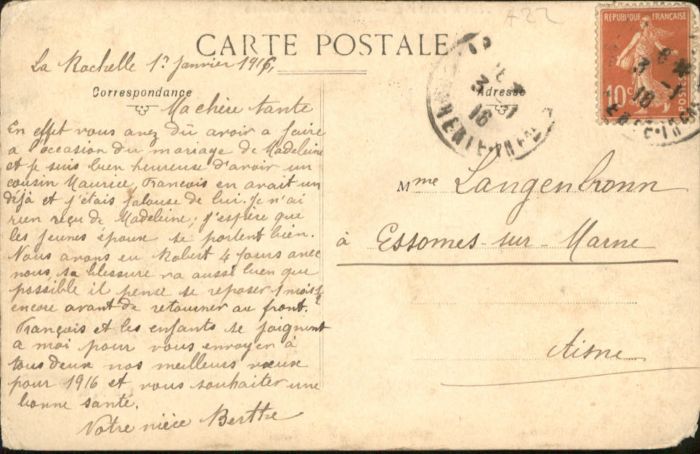 A22
CARTE POSTALE
La Rochelle 1er janvier 1916,
Correspondance
Adresse
Ma chère tante
En effet vous avez dû avoir a faire
a occasion du mariage de Madeleine
et je suis bien heureuse d'avoir un
cousin Maurice, François en avait un
déjà et j'étais jalouse de lui. Je n'ai
rien reçu de Madeleine, j'espère que
les jeunes époux se portent bien.
Nous avons eu Robert 4 jours avec
nous, sa blessure va aussi bien que
possible il pense se reposer 1 mois
encore avant de retourner au front.
François et les enfants se joignent
a moi pour vous envoyer à
tous deux nos meilleurs vœux
pour 1916 et vous souhaiter une
bonne santé.
Votre nièce Berthe
Mme Langenbronn
à Essomes-sur-Marne
Aisne
REPUBLIQUE FRANÇAISE
10c
POSTES
3 -1
16